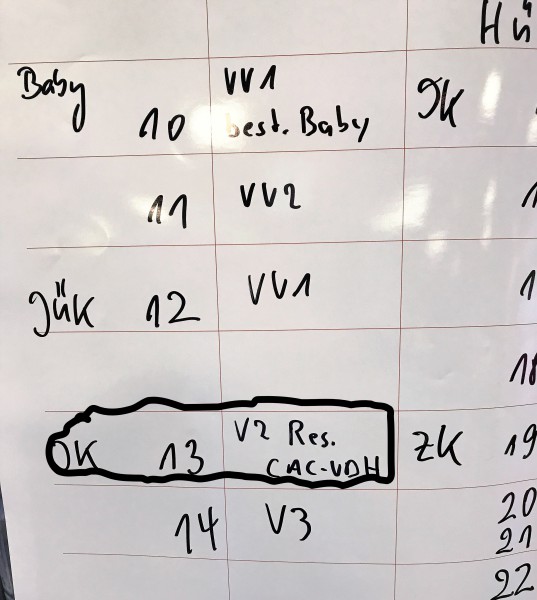 Hü
Baby 10 VV1
best. Baby JK
11 VV2
JüK 12 VV1
18
OK 13 V2 Res.
CAC-VDH ZK 19
14 V3 20
21
22